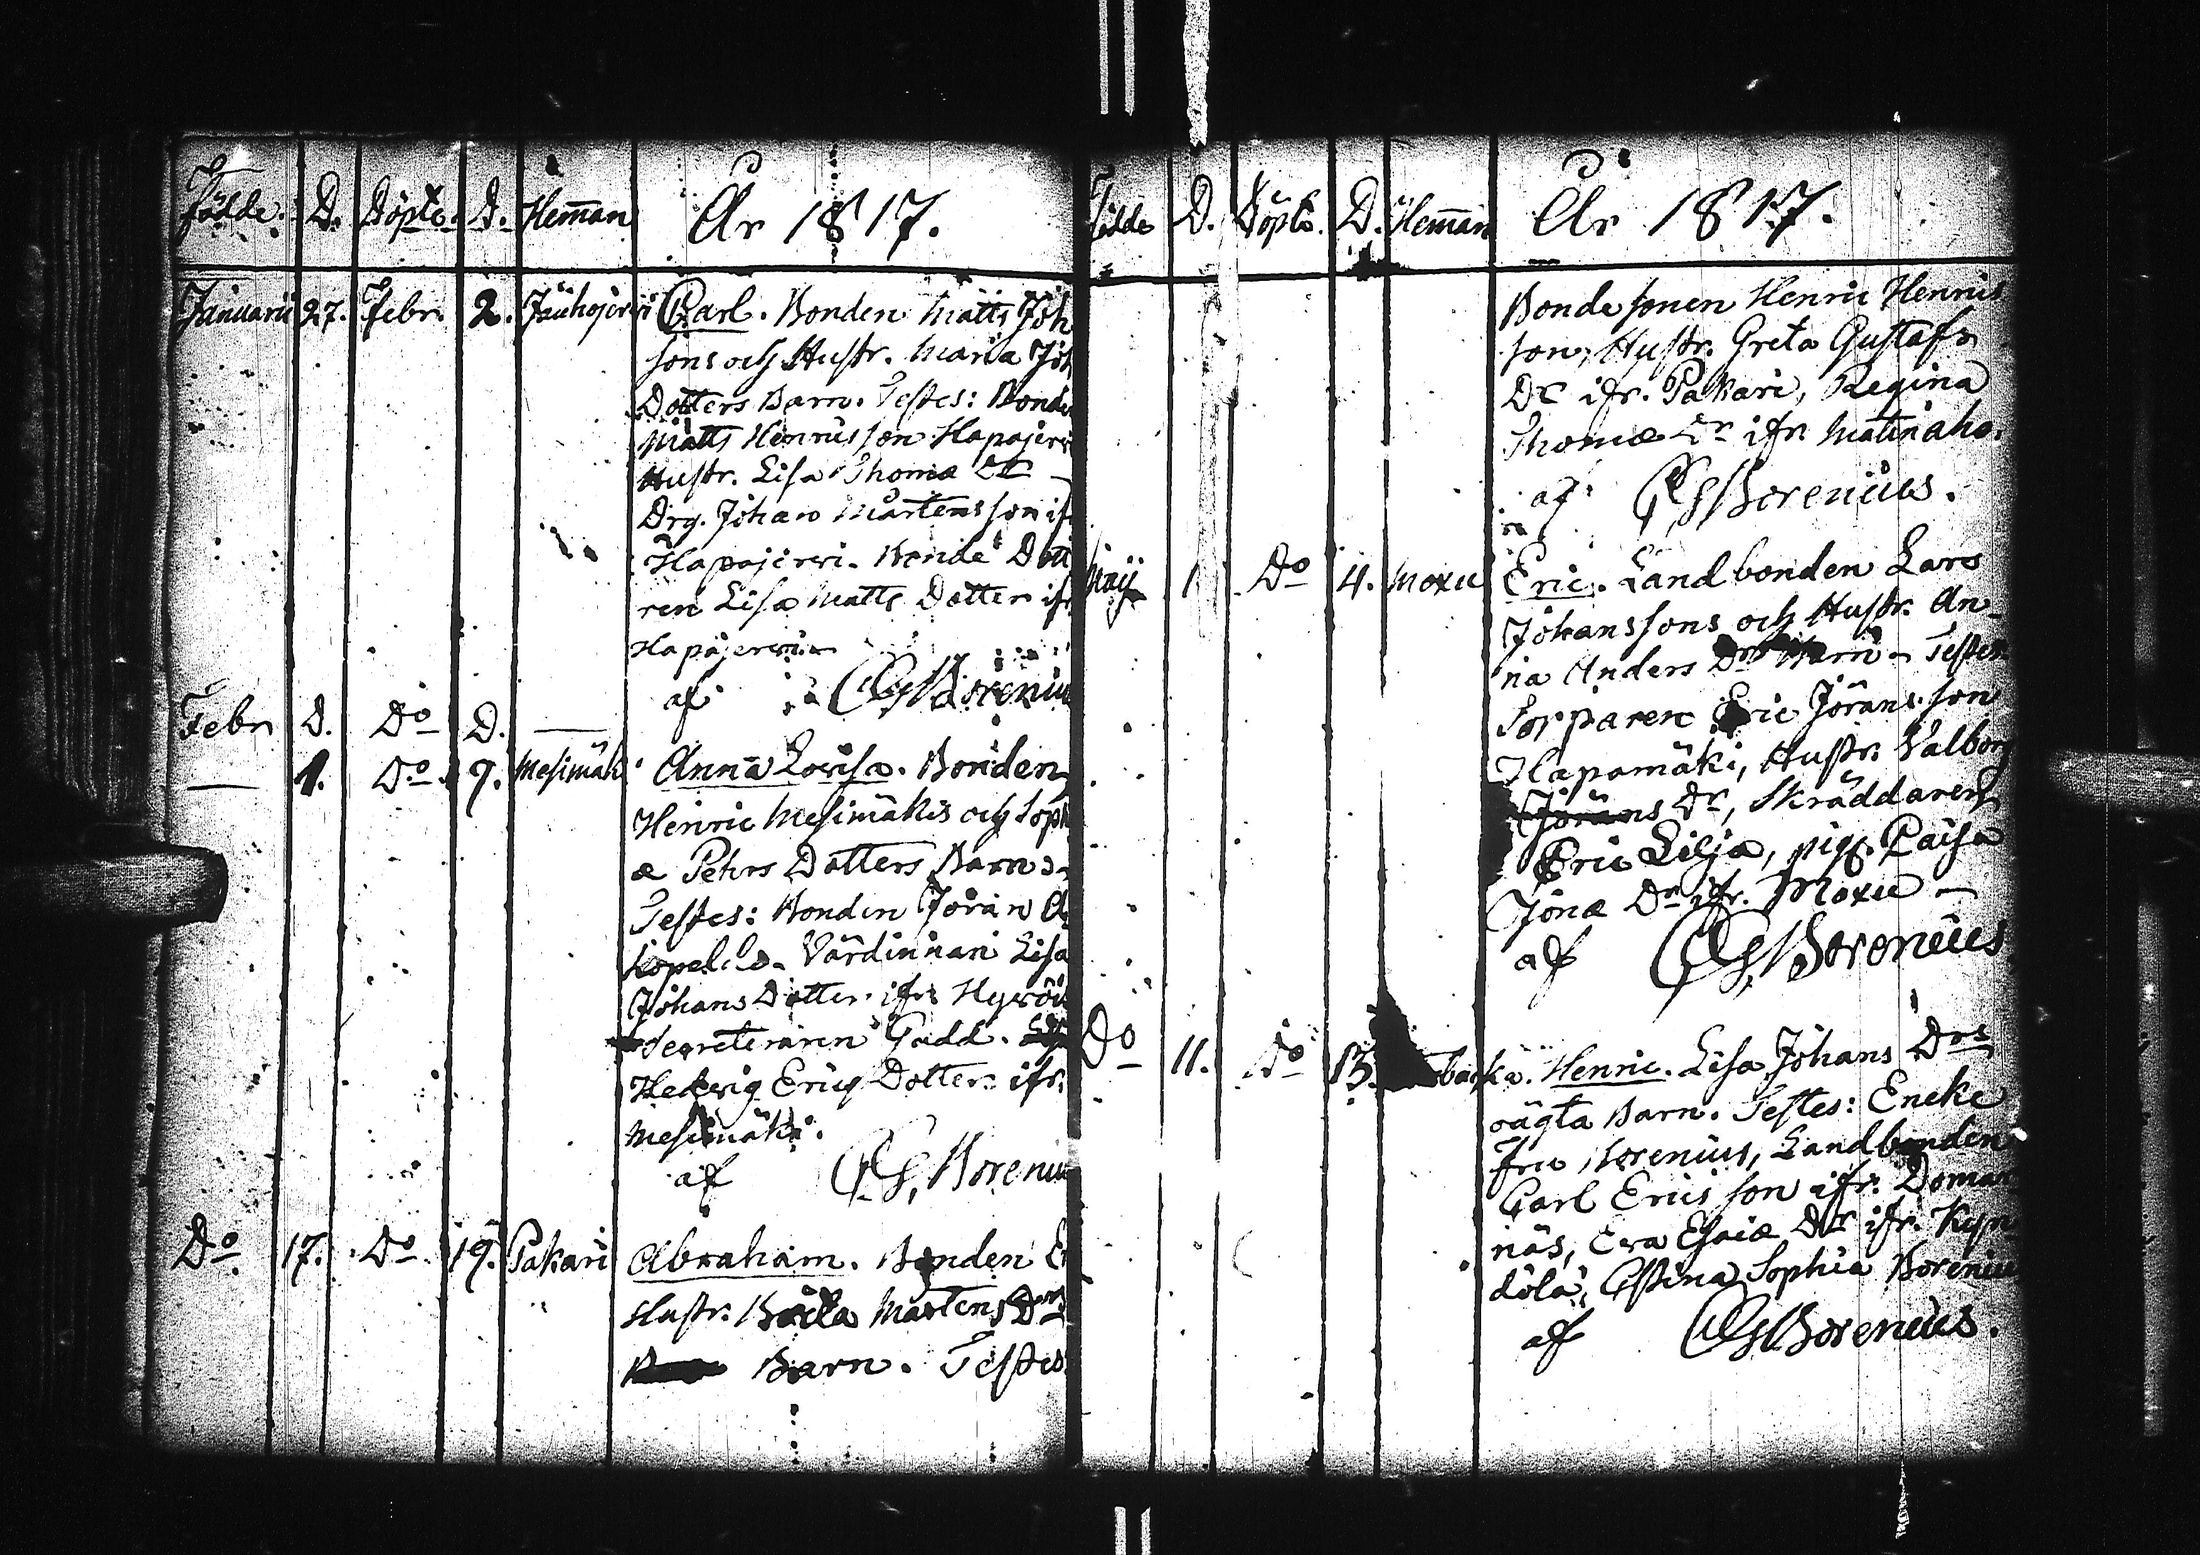 Födde. D. Döpte. D. Hemman År 1817.
Januarii 27. Febr. 2. Carl. Bonden Matts Joh
sons och Hustr. Maria Joh
Dotters Barn. Testes: Bonde
Matts Henricsson Hapajerv
Hustr. Lisa Thomæ Dr
Drg. Johan Mårtensson if
Hapajervi. Bonde Dott
ren Lisa Matts Dotter ifr
Hapajervi
af CG Borenius
Febr D. Do D. —
— 1. Do 9. Mesimäki Anna Lovisa. Bonden
Henric Mesimäkis och Soph
æ Pehrs Dotters Barn.
Testes: Bonden Jöran
Värdinnan Lisa
Johans Dotter ifr
Secreteraren Gadd.
Hedvig Erics Dotter ifr.
Mesimäki.
af CG, Boreniu
Do 17. Do 19. Pakari Abraham. Bonden E
Hustr. Mårtens Drs
Barn. Testes
Födde D. Döpte. D. Hemman År 1817.
Bondesonen Henric Henrics
son, Hustr. Greta Gustafs
Dr ifr. Pakari, Regina
Thomæ Dr ifr Matinaho.
af CG Borenius.
Maij 1 Do 4. Moxu Eric. Landbonden Lars
Johanssons och Hustr. An
na Anders Drs Barn - Testes
Torparen Eric Jöransson
Hapamäki, Hustr. Valborg
Jörans Dr, Skräddaren
Eric Lilja, pig. Caisa
Jonæ Dr ifr. Moxu —
af CG, Borenius
Do 11. Do 13. backa. Henric. Lisa Johans Drs
oägta Barn. Testes: Encke
fru Borenius, Landbonden
Carl Ericsson ifr. Domar
näs, Eva Esaiæ Dr ifr. Kyn
dölä, Stina Sophia Borenius
af CG Borenius.